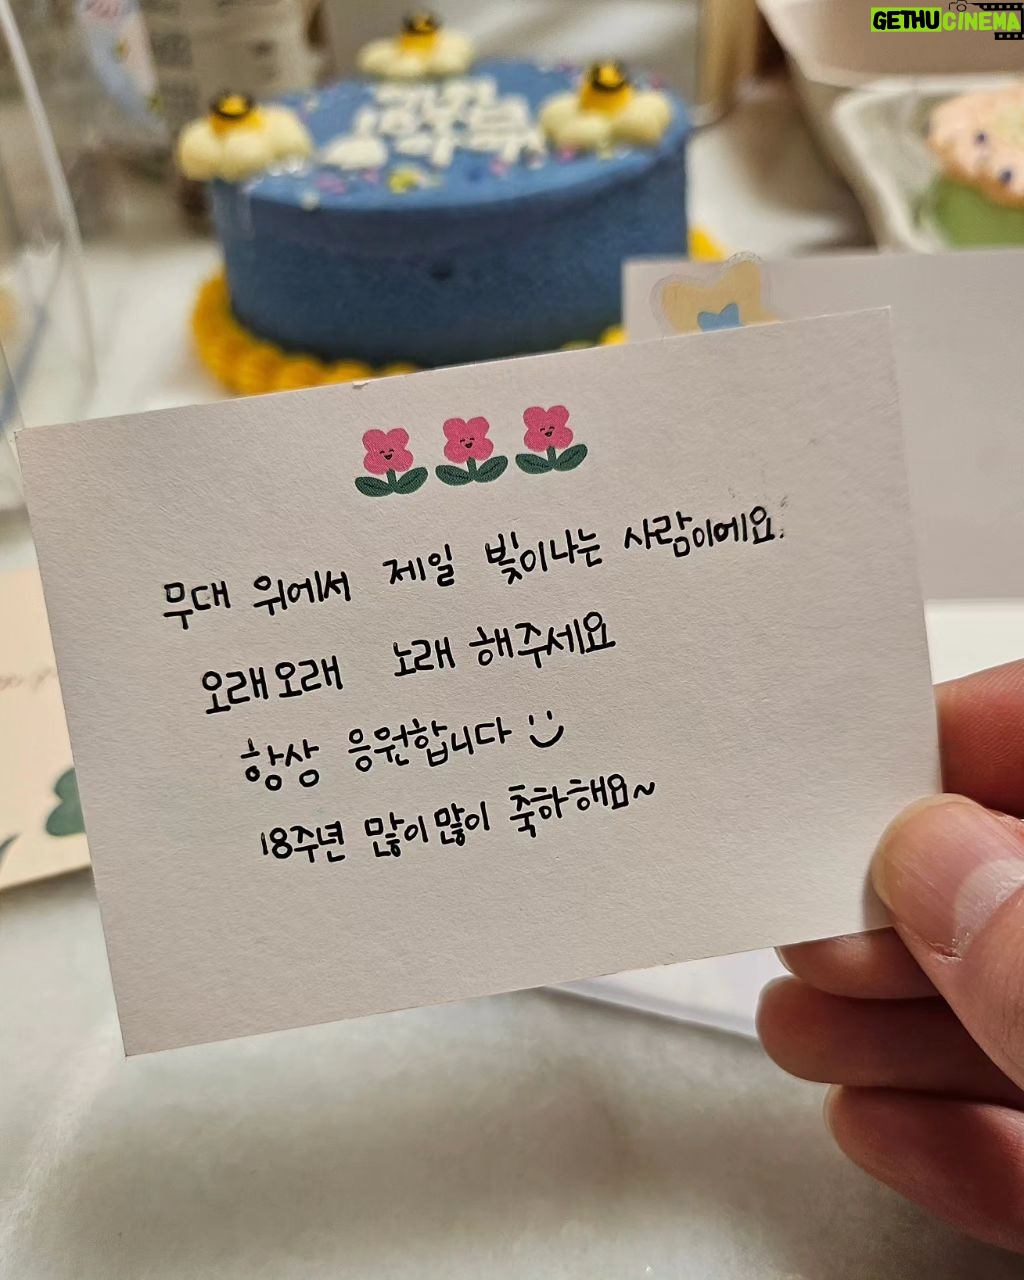 GETHUCINEMA
무대 위에서 제일 빛이나는 사람이에요.
오래오래 노래 해주세요
항상 응원합니다
18주년 많이많이 축하해요~